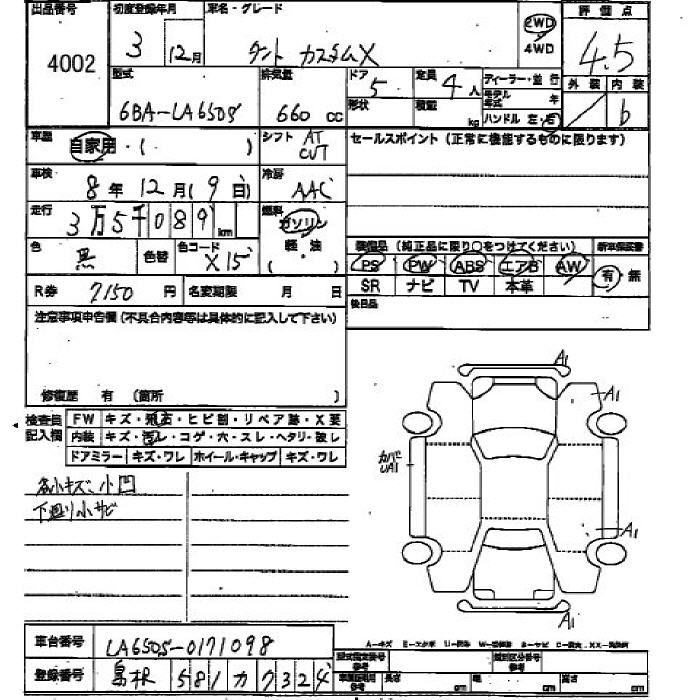 出品番号 4002
初度登録年月 3 12月
車名・グレード タント カスタムX
2WD 4WD
評価点 4.5
型式 6BA-LA650S
排気量 660 cc
ドア 5
形状
定員 4人
積載 kg
ディーラー・並行
モデル年式 年
ハンドル 左・右
外装 内装 b
車歴 自家用・( )
シフト AT CVT
セールスポイント(正常に機能するものに限ります)
車検 8年 12月(9日)
冷房 AAC
走行 3万5千089km
燃料 ガソリン 軽油 ( )
色 黒 色替
色コード X15
装備品(純正品に限り○をつけてください)
新車保証書 有 無
PS PW ABS エアB AW
SR ナビ TV 本革
後日品
R券 7150円
名変期限 月 日
注意事項申告欄(不具合内容等は具体的に記入して下さい)
修復歴 有(箇所 )
検査員記入欄
FW キズ・飛石・ヒビ割・リペア跡・X要
内装 キズ・汚レ・コゲ・穴・スレ・ヘタリ・破レ
ドアミラー キズ・ワレ ホイール・キャップ キズ・ワレ
各小キズ、小凹
下廻り小サビ
A1
A1
カバー UA1
A1
A1
車台番号 LA650S-0171098
登録番号 島根 581 カ 7324
型式指定番号 参考
類別区分番号 参考
長さ cm 幅 cm 高さ cm